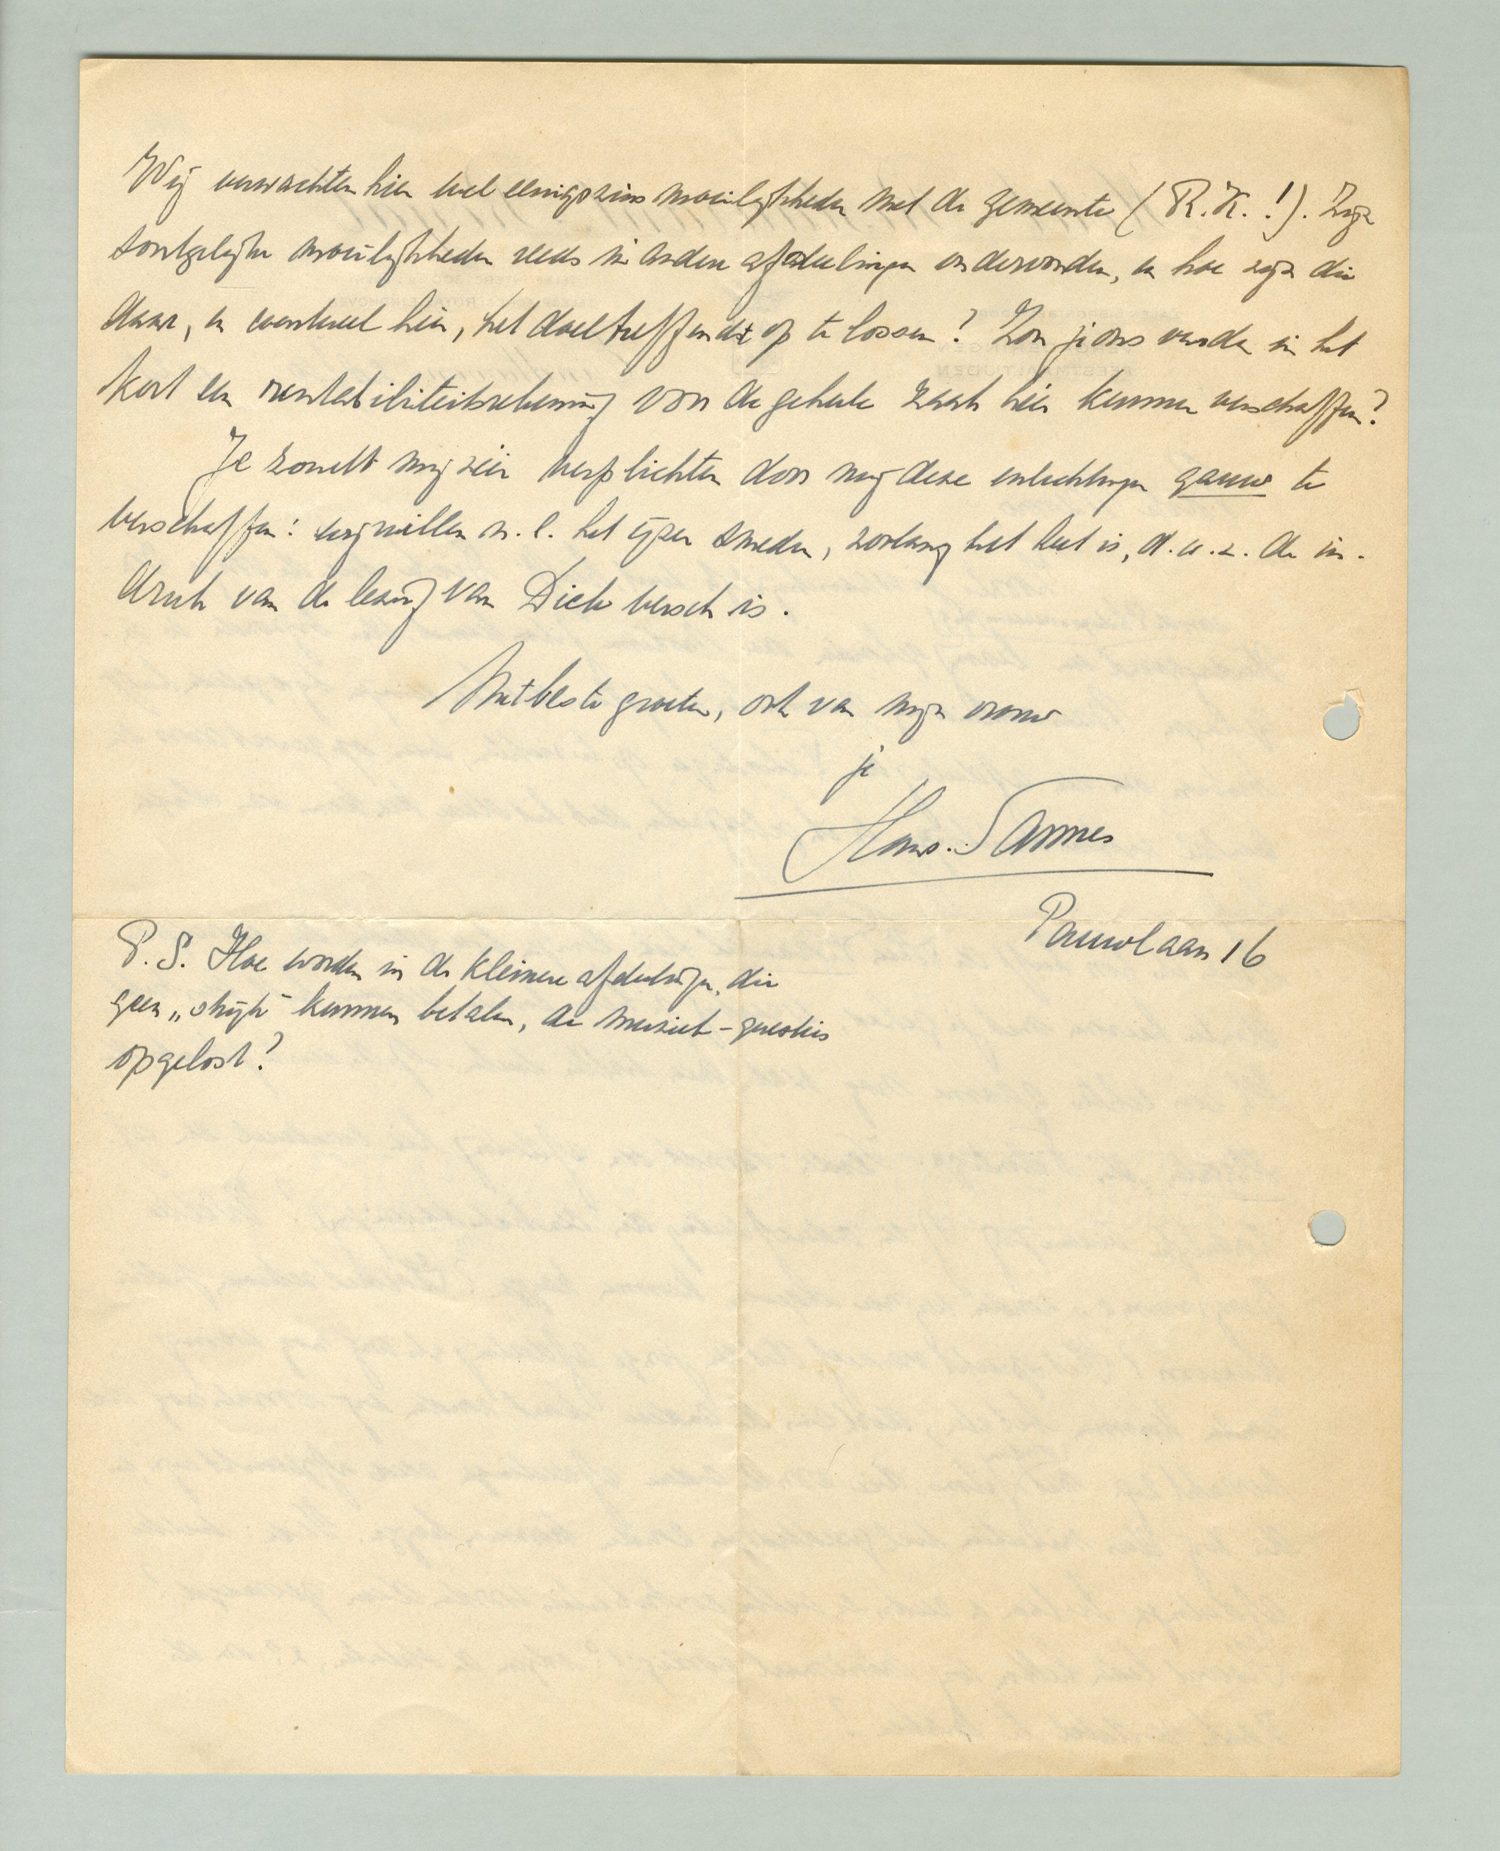 Wij verwachten hier wel eenigszins moeilijkheden met de gemeente (R.K.!). Zijn
soortgelijke moeilijkheden reeds in andere afdeelingen ondervonden, en hoe zijn die
daar, en eventueel hier, het doeltreffendst op te lossen? Zou je ons verder in het
kort een rentabiliteitsrekening van de geheele zaak hier kunnen verschaffen?
Je zoudt mij zeer verplichten door mij deze inlichtingen gauw te
verschaffen: wij willen n.l. het ijzer smeden, zoolang het heet is, d.w.z. de in-
druk van de lezing van Dick versch is.
Met beste groeten, ook van mijn vrouw
je
Hans. Sannes
Pauwlaan 16
P.S. Hoe worden in de kleinere afdeelingen, die
geen „strijk" kunnen betalen, de muziek-quaesties
opgelost?